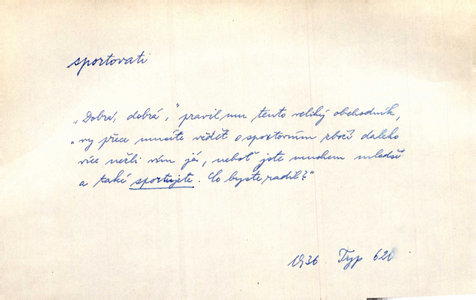 sportovati
„Dobrá, dobrá," pravil mu tento veliký obchodník,
„vy přece musíte vědět o sportovním zboží daleko
více nežli vím já, neboť jste mnohem mladší
a také sportujete. Co byste radil?"
1936 Typ 620